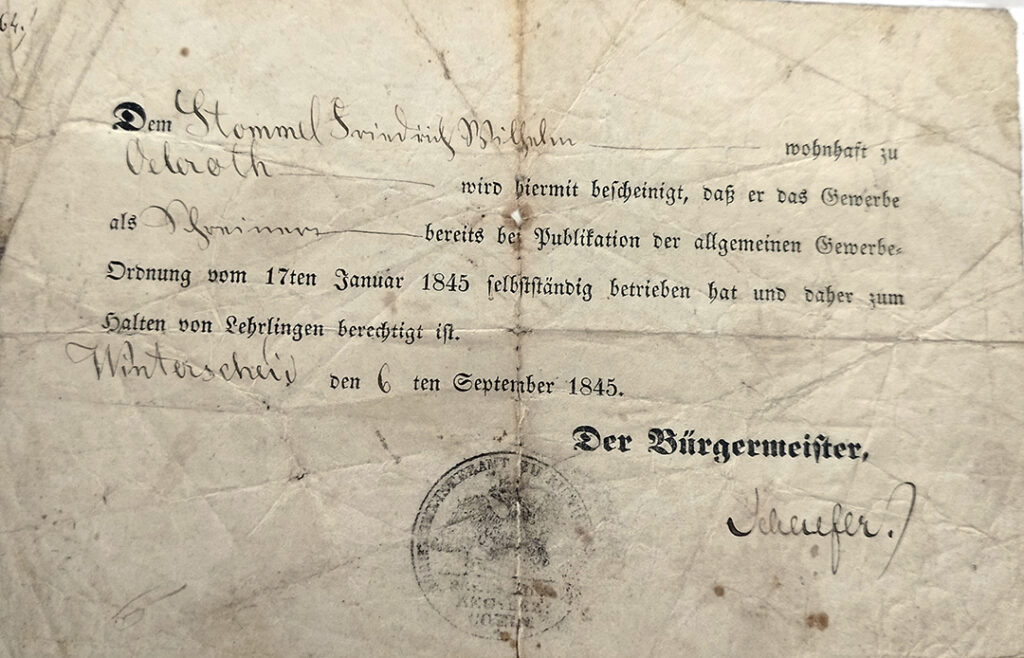 64.
Dem Stommel Friedrich Wilhelm wohnhaft zu
Oeleroth wird hiermit bescheinigt, daß er das Gewerbe
als Schreiner bereits bei Publikation der allgemeinen Gewerbe-
Ordnung vom 17ten Januar 1845 selbstständig betrieben hat und daher zum
Halten von Lehrlingen berechtigt ist.
Winterscheid den 6 ten September 1845.
Der Bürgermeister,
Scheefer.